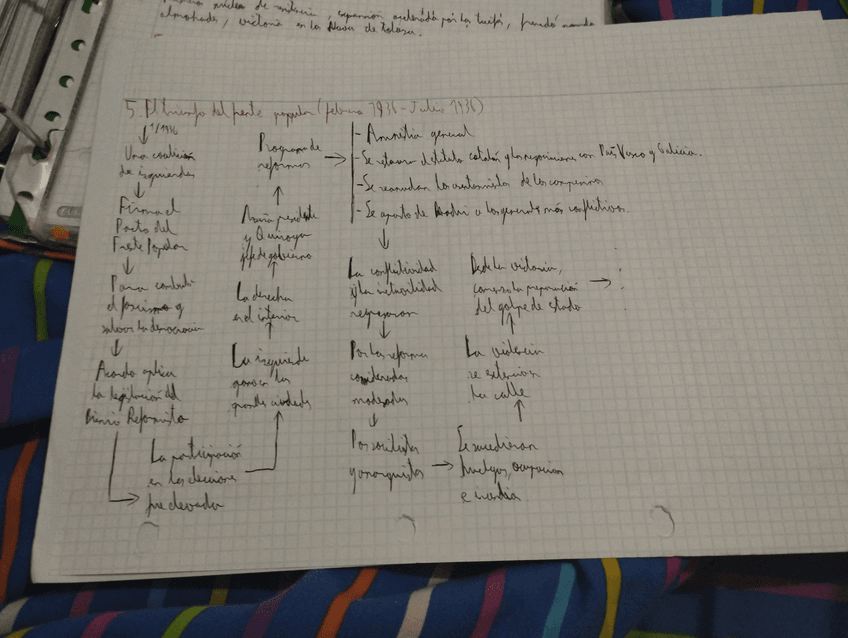 almohades, victoria en las Navas de Tolosa.
5. El triunfo del frente popular (febrero 1936 - Julio 1936)
1/1936
Una coalición
de izquierdas
Firma el
Pacto del
Frente Popular
Para combatir
el fascismo y
salvar la democracia
Acordó aplicar
la legislación del
Bienio Reformista
La participación
en las elecciones
fue elevada
La izquierda
ganó en las
grandes ciudades
La derecha
en el interior
Azaña presidente
y Quiroga
jefe de gobierno
Programa de
reformas
- Amnistía general
- Se restaura el estatuto catalán y las negociaciones con País Vasco y Galicia.
- Se reanudan los asentamientos de los campesinos
- Se apartó de Madrid a los generales más conflictivos.
La conflictividad
y la inestabilidad
regresaron
Por las reformas
consideradas
moderadas
Por socialistas
y anarquistas
Se sucedieron
huelgas, ocupaciones
e incendios
La violencia
se extendió en
la calle
Desde la victoria,
comenzó la preparación
del golpe de estado